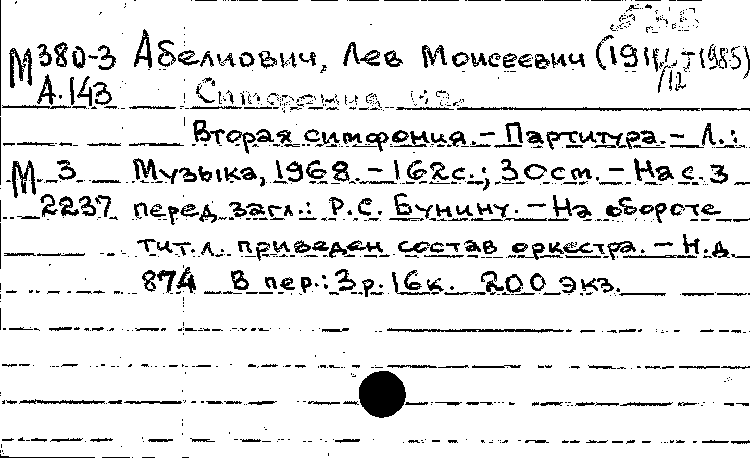 М 380-3 Абелиович, Лев Моисеевич (1912-1985)
А.143 Симфония №2.
Вторая симфония. – Партитура. – Л.:
М 3 Музыка, 1968. – 162с.; 30см. – На с. 3
2237 перед загл.: Р.С. Бунину. – На обороте
тит.л. приведен состав оркестра. – Н.д.
874 В пер.: 3р. 16к. 200 экз.